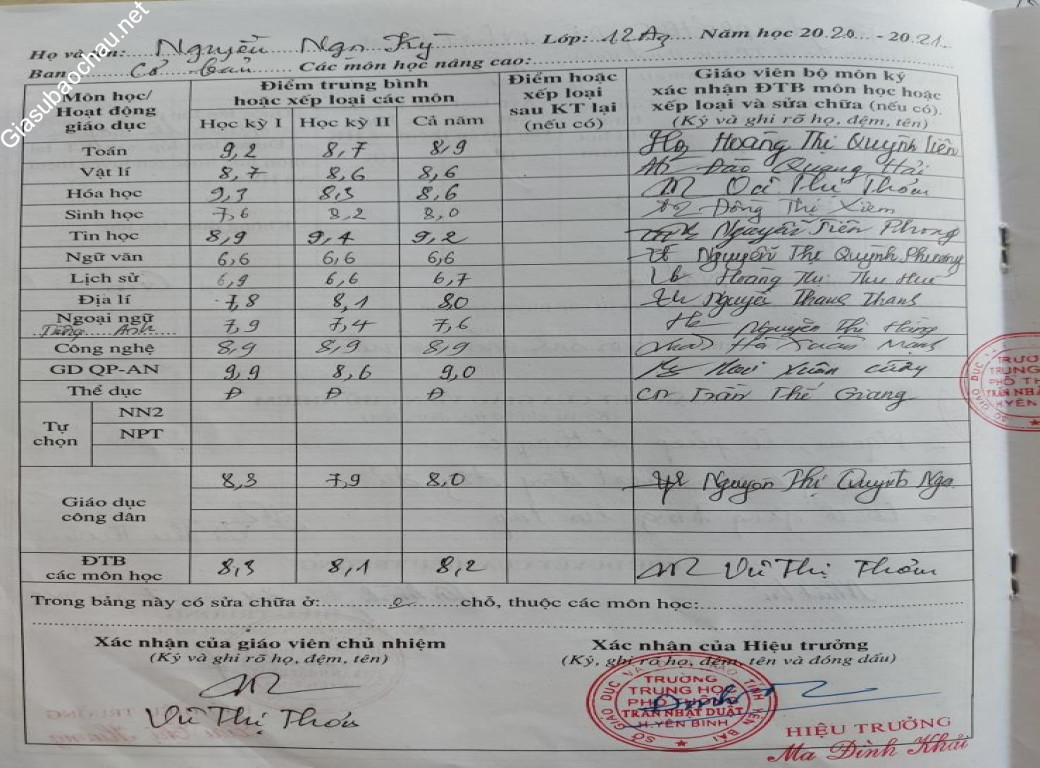 Giasubaochau.net
Họ và tên: Nguyễn Ngọ Kỳ Lớp: 12A3 Năm học 2020 - 2021
Ban: Cơ bản Các môn học nâng cao:
Môn học/ Hoạt động giáo dục Điểm trung bình hoặc xếp loại các môn Điểm hoặc xếp loại sau KT lại (nếu có) Giáo viên bộ môn ký xác nhận ĐTB môn học hoặc xếp loại và sửa chữa (nếu có). (Ký và ghi rõ họ, đệm, tên)
Học kỳ I Học kỳ II Cả năm
Toán 9,2 8,7 8,9 Hoàng Thị Quỳnh Liên
Vật lí 8,7 8,6 8,6 Đào Quang Hải
Hóa học 9,3 8,3 8,6 Thị Thơm
Sinh học 7,6 8,2 8,0 Đồng Thị Xiêm
Tin học 8,9 9,4 9,2 Nguyễn Tiến Phong
Ngữ văn 6,6 6,6 6,6 Nguyễn Thị Quỳnh Phương
Lịch sử 6,9 6,6 6,7 Hoàng Thị Thu Huế
Địa lí 7,8 8,1 8,0 Nguyễn Thanh Thanh
Ngoại ngữ Tiếng Anh 7,9 7,4 7,6 Nguyễn Thị Hằng
Công nghệ 8,9 8,9 8,9 Hà Xuân Mạnh
GD QP-AN 9,9 8,6 9,0 Xuân
Thể dục Đ Đ Đ Trần Thế Giang
Tự chọn NN2
NPT
Giáo dục công dân 8,3 7,9 8,0 Nguyễn Thị Quỳnh Nga
ĐTB các môn học 8,3 8,1 8,2 Vũ Thị Thơm
Trong bảng này có sửa chữa ở: 0 chỗ, thuộc các môn học:
Xác nhận của giáo viên chủ nhiệm Xác nhận của Hiệu trưởng
(Ký và ghi rõ họ, đệm, tên) (Ký, ghi rõ họ, đệm, tên và đóng dấu)
Vũ Thị Thơm
SỞ GIÁO DỤC VÀ ĐÀO TẠO TỈNH YÊN BÁI
TRƯỜNG
TRUNG HỌC
PHỔ THÔNG
TRẦN NHẬT DUẬT
H.YÊN BÌNH
HIỆU TRƯỞNG
Ma Đình Khải